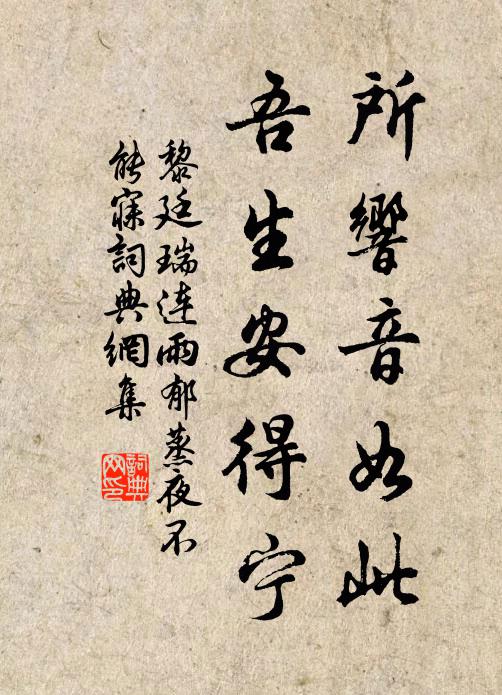 所響音如此
吾生安得宁
黎廷瑞連雨郁蒸夜不
能寐詞典網集
詞典
网印